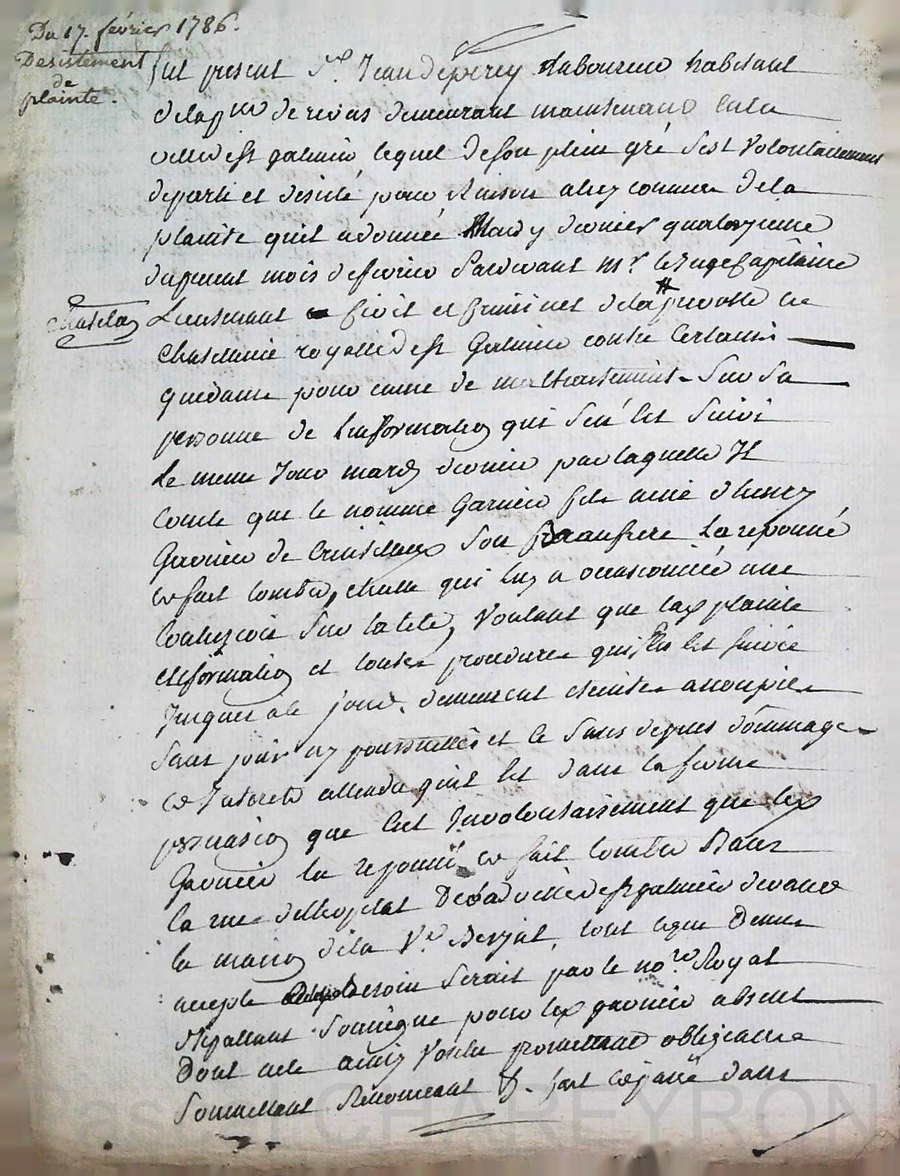 Du 17. février 1786.
Desistement
de
plainte.
fut present Sr. Jean deperey laboureur habitant
de la psse de rivas demeurant maintenant en la
ville de st galmier lequel de son plein gré s'est volontairement
departi et desisté pour Raison a luy connue de la
plainte quil a donnée Mardy dernier quatorzieme
du present mois de fevrier pardevant Mr le Juge Capitaine
chatelain
Lieutenant civil et criminel de la prevosté et
Chatelanie royalle de st Galmier contre Certains
quidams pour cause de maltraitements Sur Sa
personne de Linformation qui s'en est Suivi
Le meme Jour mardy dernier par laquelle Il
conste que le nommé Garnier fils ainé d'henry
Garnier de Son beaufrere La
et fait tomber, chutte qui luy a occasionnée une
Sur la tete, Voulant que lad plainte
et information et toutes procedures qui s'en est suivie
Jusques a ce jour, demeurent eteintes assoupies
Sans pouvoir y poursuites et ce Sans depens dommages
et Interets attendu quil est dans la ferme
persuasion que C'est Involontairement que led
Garnier la et fait tomber Dans
la rue de lhopital De la ville de st galmier devant
la maison de la Ve , tout ce que Dessus
accepté Serait par le nore Royal
Stipullant Soussigné pour led garnier absent
Dont acte ainsy Voulu promettant obligeant
Soumettant Renonceant &. fait et passé dans
CHAREYRON